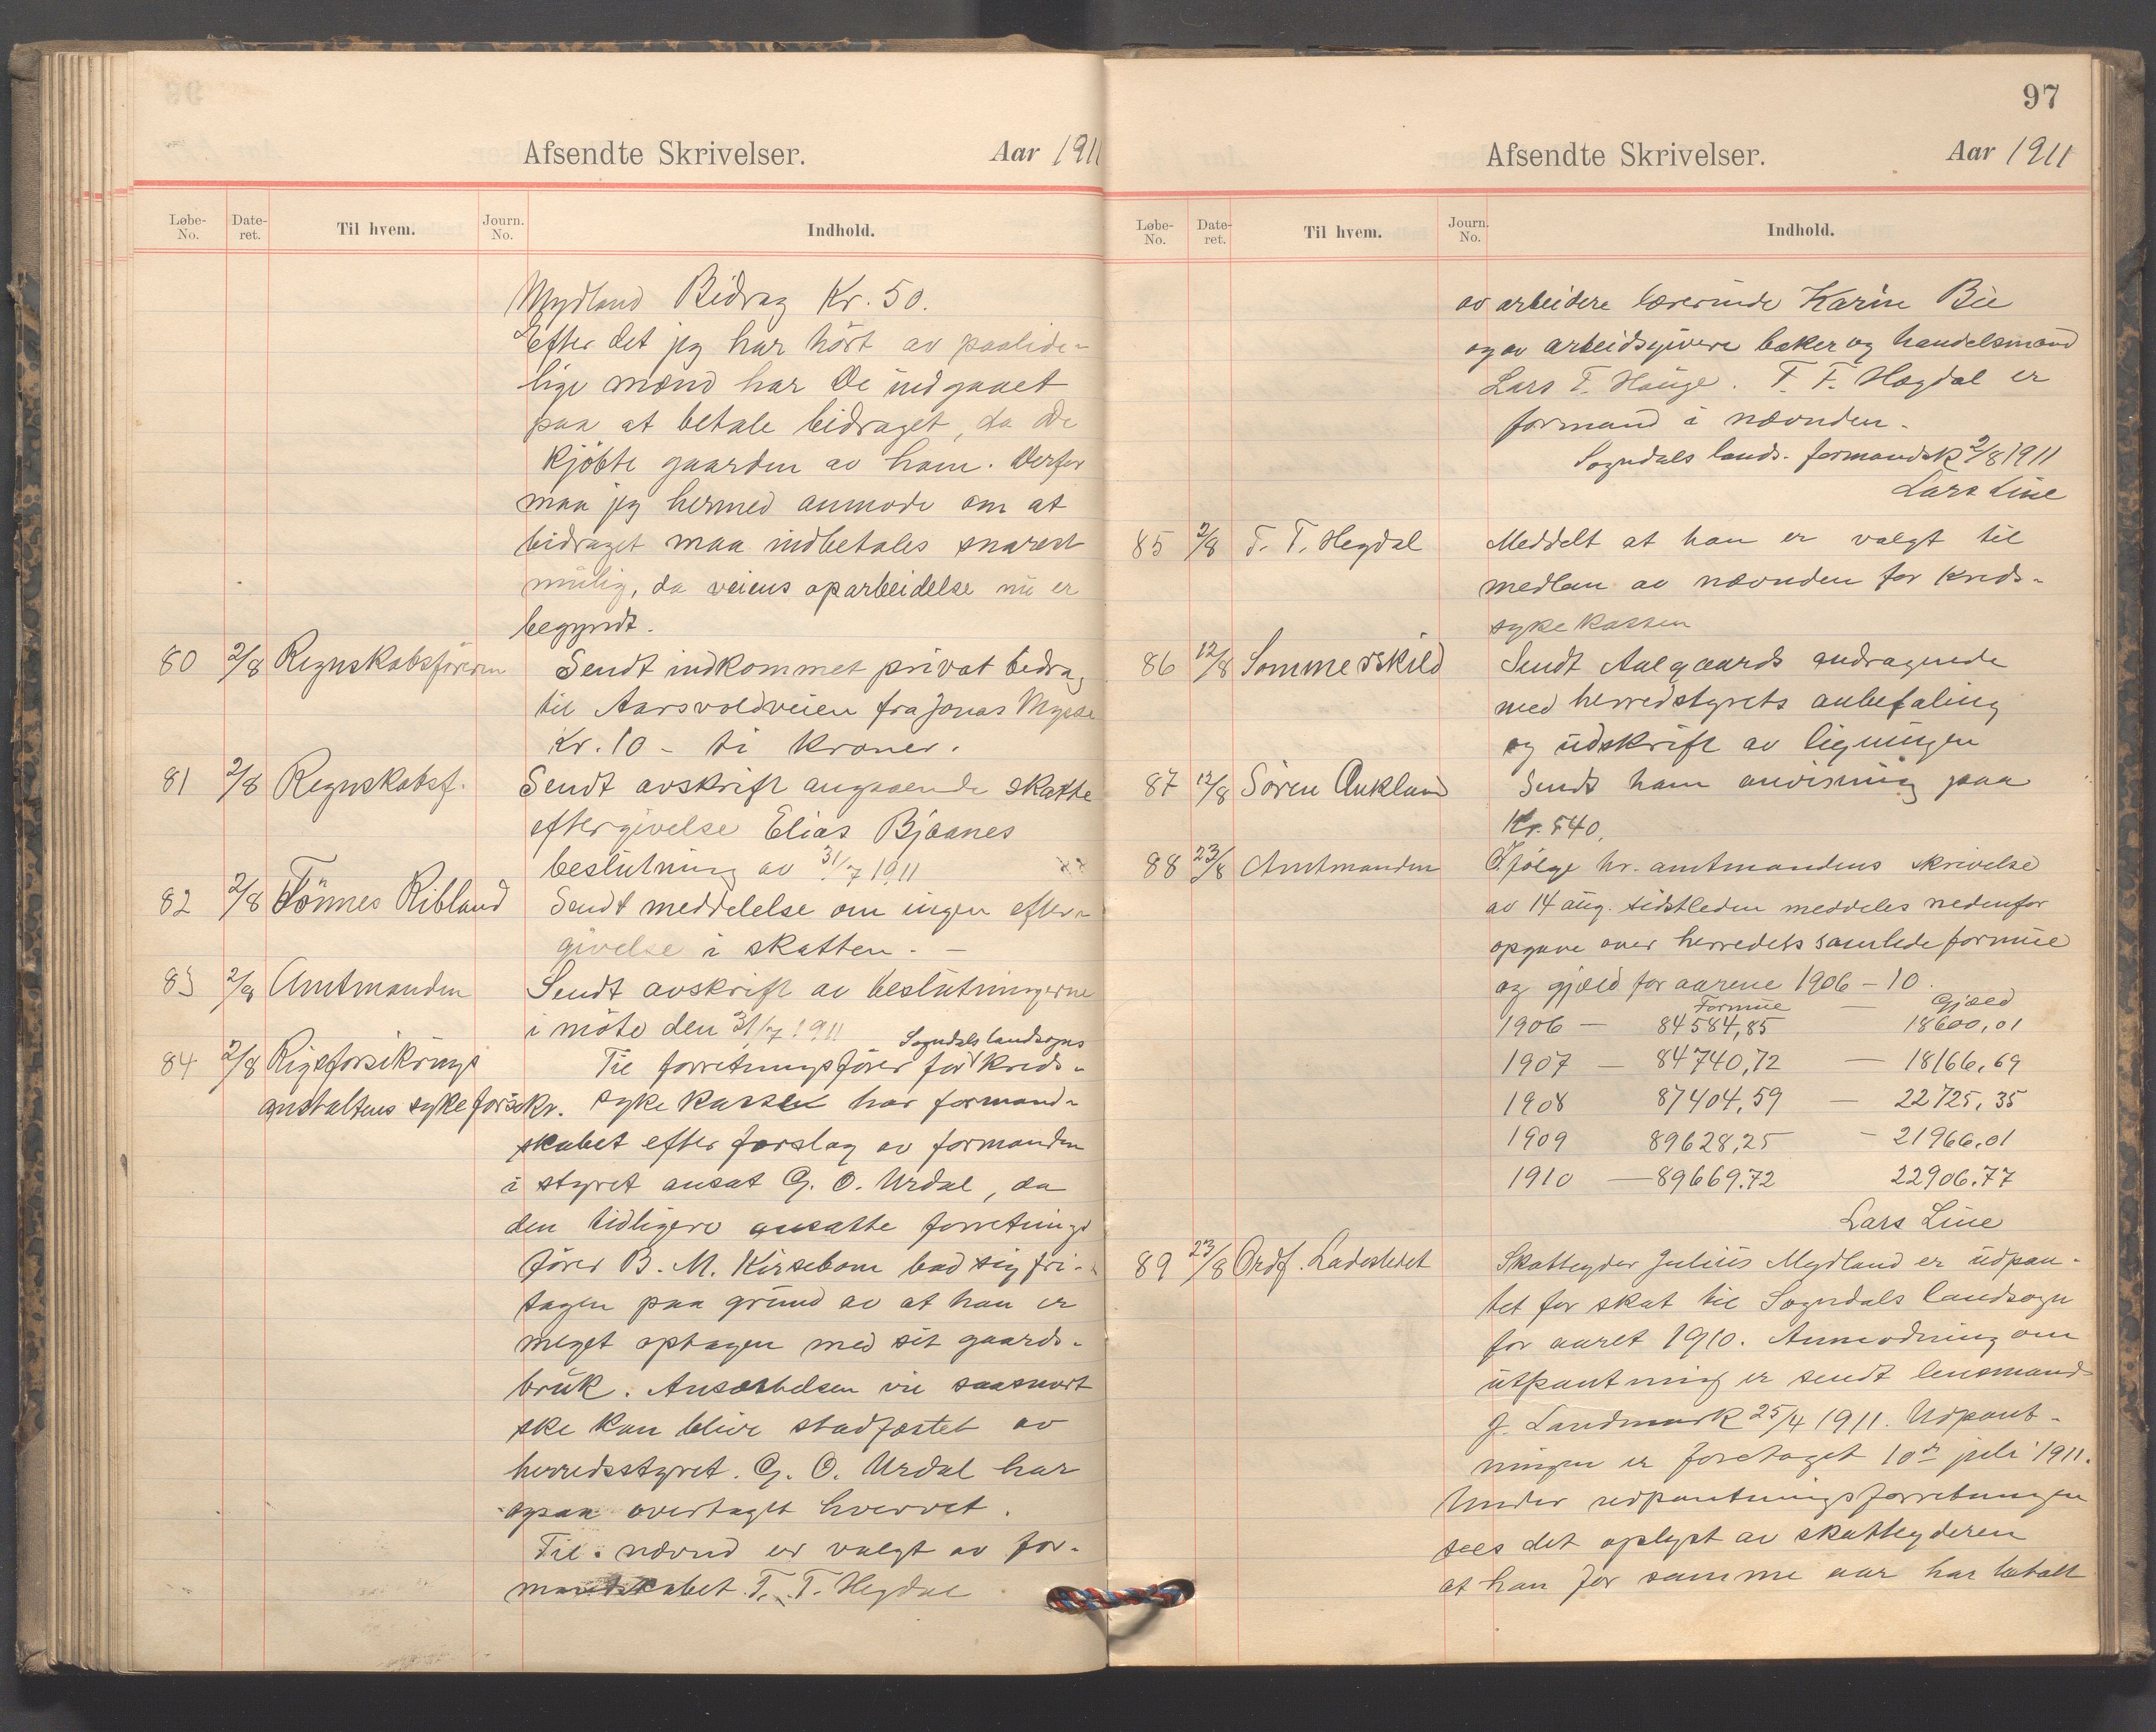 Afsendte Skrivelser. Aar 1911
Løbe-No. Date-ret. Til hvem. Journ. No. Indhold.
Mydland Bidrag Kr. 50.
Efter det jeg har hört av paalide-
lige mænd har De indgaaet
paa at betale bidraget, da De
kjöbte gaarden av ham. Derfor
maa jeg hermed anmode om at
bidraget maa indbetales snarest
mulig, da veiens oparbeidelse nu er
begyndt.
80 2/8 Regnskabsföreren Sendt indkommet privat bidrag
til Aarsvoldveien fra Jonas
Kr. 10 - ti kroner.
81 2/8 Regnskabsf. Sendt avskrift angaaende skatte
eftergivelse Elias Bjaanes
beslutning av 31/7 1911
82 2/8 Tönnes Ribland Sendt meddelelse om ingen efter-
givelse i skatten. -
83 2/8 Amtmanden Sendt avskrift av beslutningerne
i möte den 31/7 1911
84 2/8 Rigsforsikrings Til forretningsförer for Sogndals landsogns kreds-
anstaltens sykeforsikr. sykekasse har formand-
skabet efter forslag av formanden
i styret ansat G. O. Urdal, da
den tidligere ansatte forretnings
förer B. M. Kirsebom bad sig fri-
tagen paa grund av at han er
meget optagen med sit gaards-
bruk. Ansættelsen vil saasnart
ske kan blive stadfæstet av
herredsstyret. G. O. Urdal har
ogsaa overtaget hvervet.
Til nævnd er valgt av for-
mandskabet T. T. Hegdal
97
Afsendte Skrivelser. Aar 1911
Løbe-No. Date-ret. Til hvem. Journ. No. Indhold.
av arbeidere lærerinde Karin Bie
og av arbeidsgivere baker og handelsmand
Lars T. Hauge. T. T. Hegdal er
formand i nævnden.
Sogndals lands. formandsk 2/8 1911
Lars Line
85 2/8 T. T. Hegdal Meddelt at han er valgt til
medlem av nævnden for kreds-
sykekassen
86 12/8 Sommerskild Sendt Aalgaards andragende
med herredstyrets anbefaling
og udskrift av ligningen
87 12/8 Sören Aukland Sendt ham anvisning paa
Kr. 540.
88 23/8 Amtmanden Ifölge hr. amtmandens skrivelse
av 14 aug. sidstleden meddeles nedenfor
opgave over herredets samlede formue
og gjæld for aarene 1906 - 10.
Formue - Gjæld
1906 - 84584,85 18600,01
1907 - 84740,72 - 18166,69
1908 87404,59 - 22725,35
1909 89628,25 - 21966,01
1910 - 89669.72 22906.77
Lars Line
89 23/8 Ordf. Ladestedet Skatteyder Julius Mydland er udpan-
tet for skat til Sogndals landsogn
for aaret 1910. Anmodning om
utpantning er sendt lensmand
J. Landmark 25/4 1911. Udpant-
ningen er foretaget 10de juli 1911.
Under udpantningsforretningen
sees det oplyst av skatteyderen
at han for samme aar har betalt